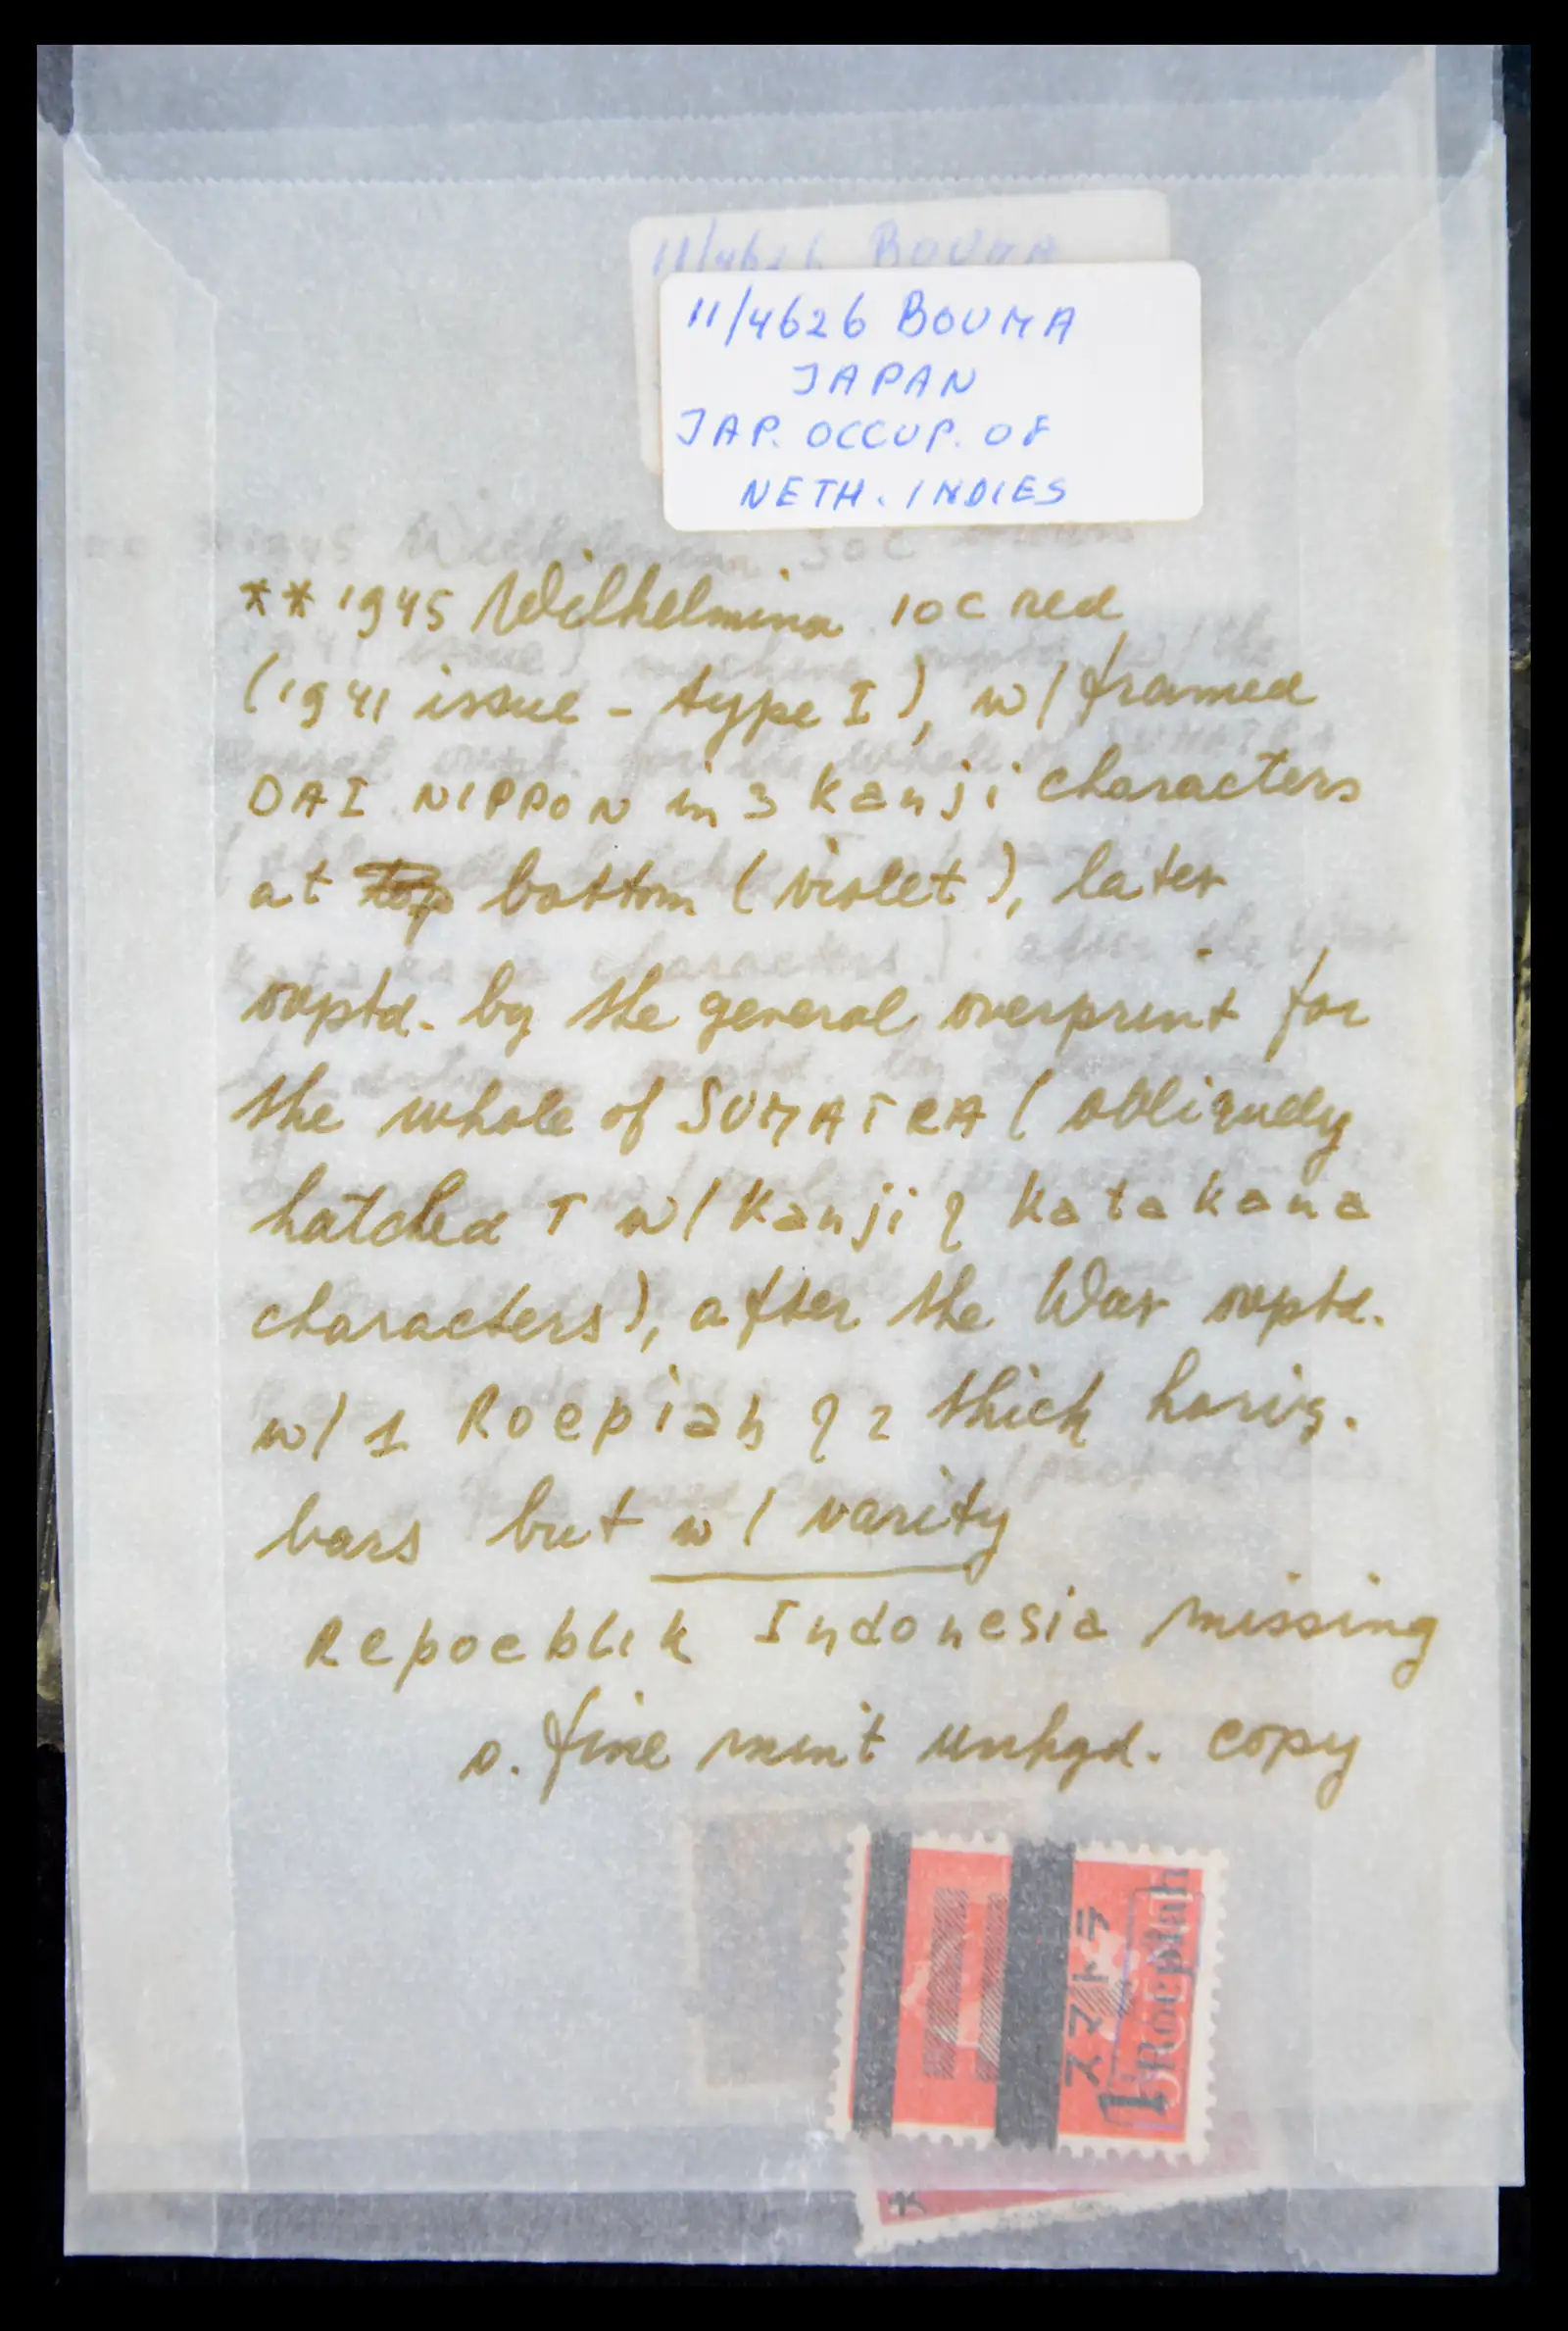 11/4626 BOUMA
11/4626 BOUMA
JAPAN
JAP. OCCUP. OF
NETH. INDIES
1945 Wilhelmina 30c
** 1945 Wilhelmina 10c red
(1941 issue - type I), w/ framed
DAI NIPPON in 3 Kanji characters
at top bottom (violet), later
ovptd. by the general overprint for
the whole of SUMATRA (obliquely
hatched T w/ Kanji & Katakana
characters), after the War ovptd.
w/ 1 Roepiah & 2 thick horiz.
bars but w/ varity
Repoeblik Indonesia missing
s. fine mint unhgd. copy
スマトラ
1 Roepiah